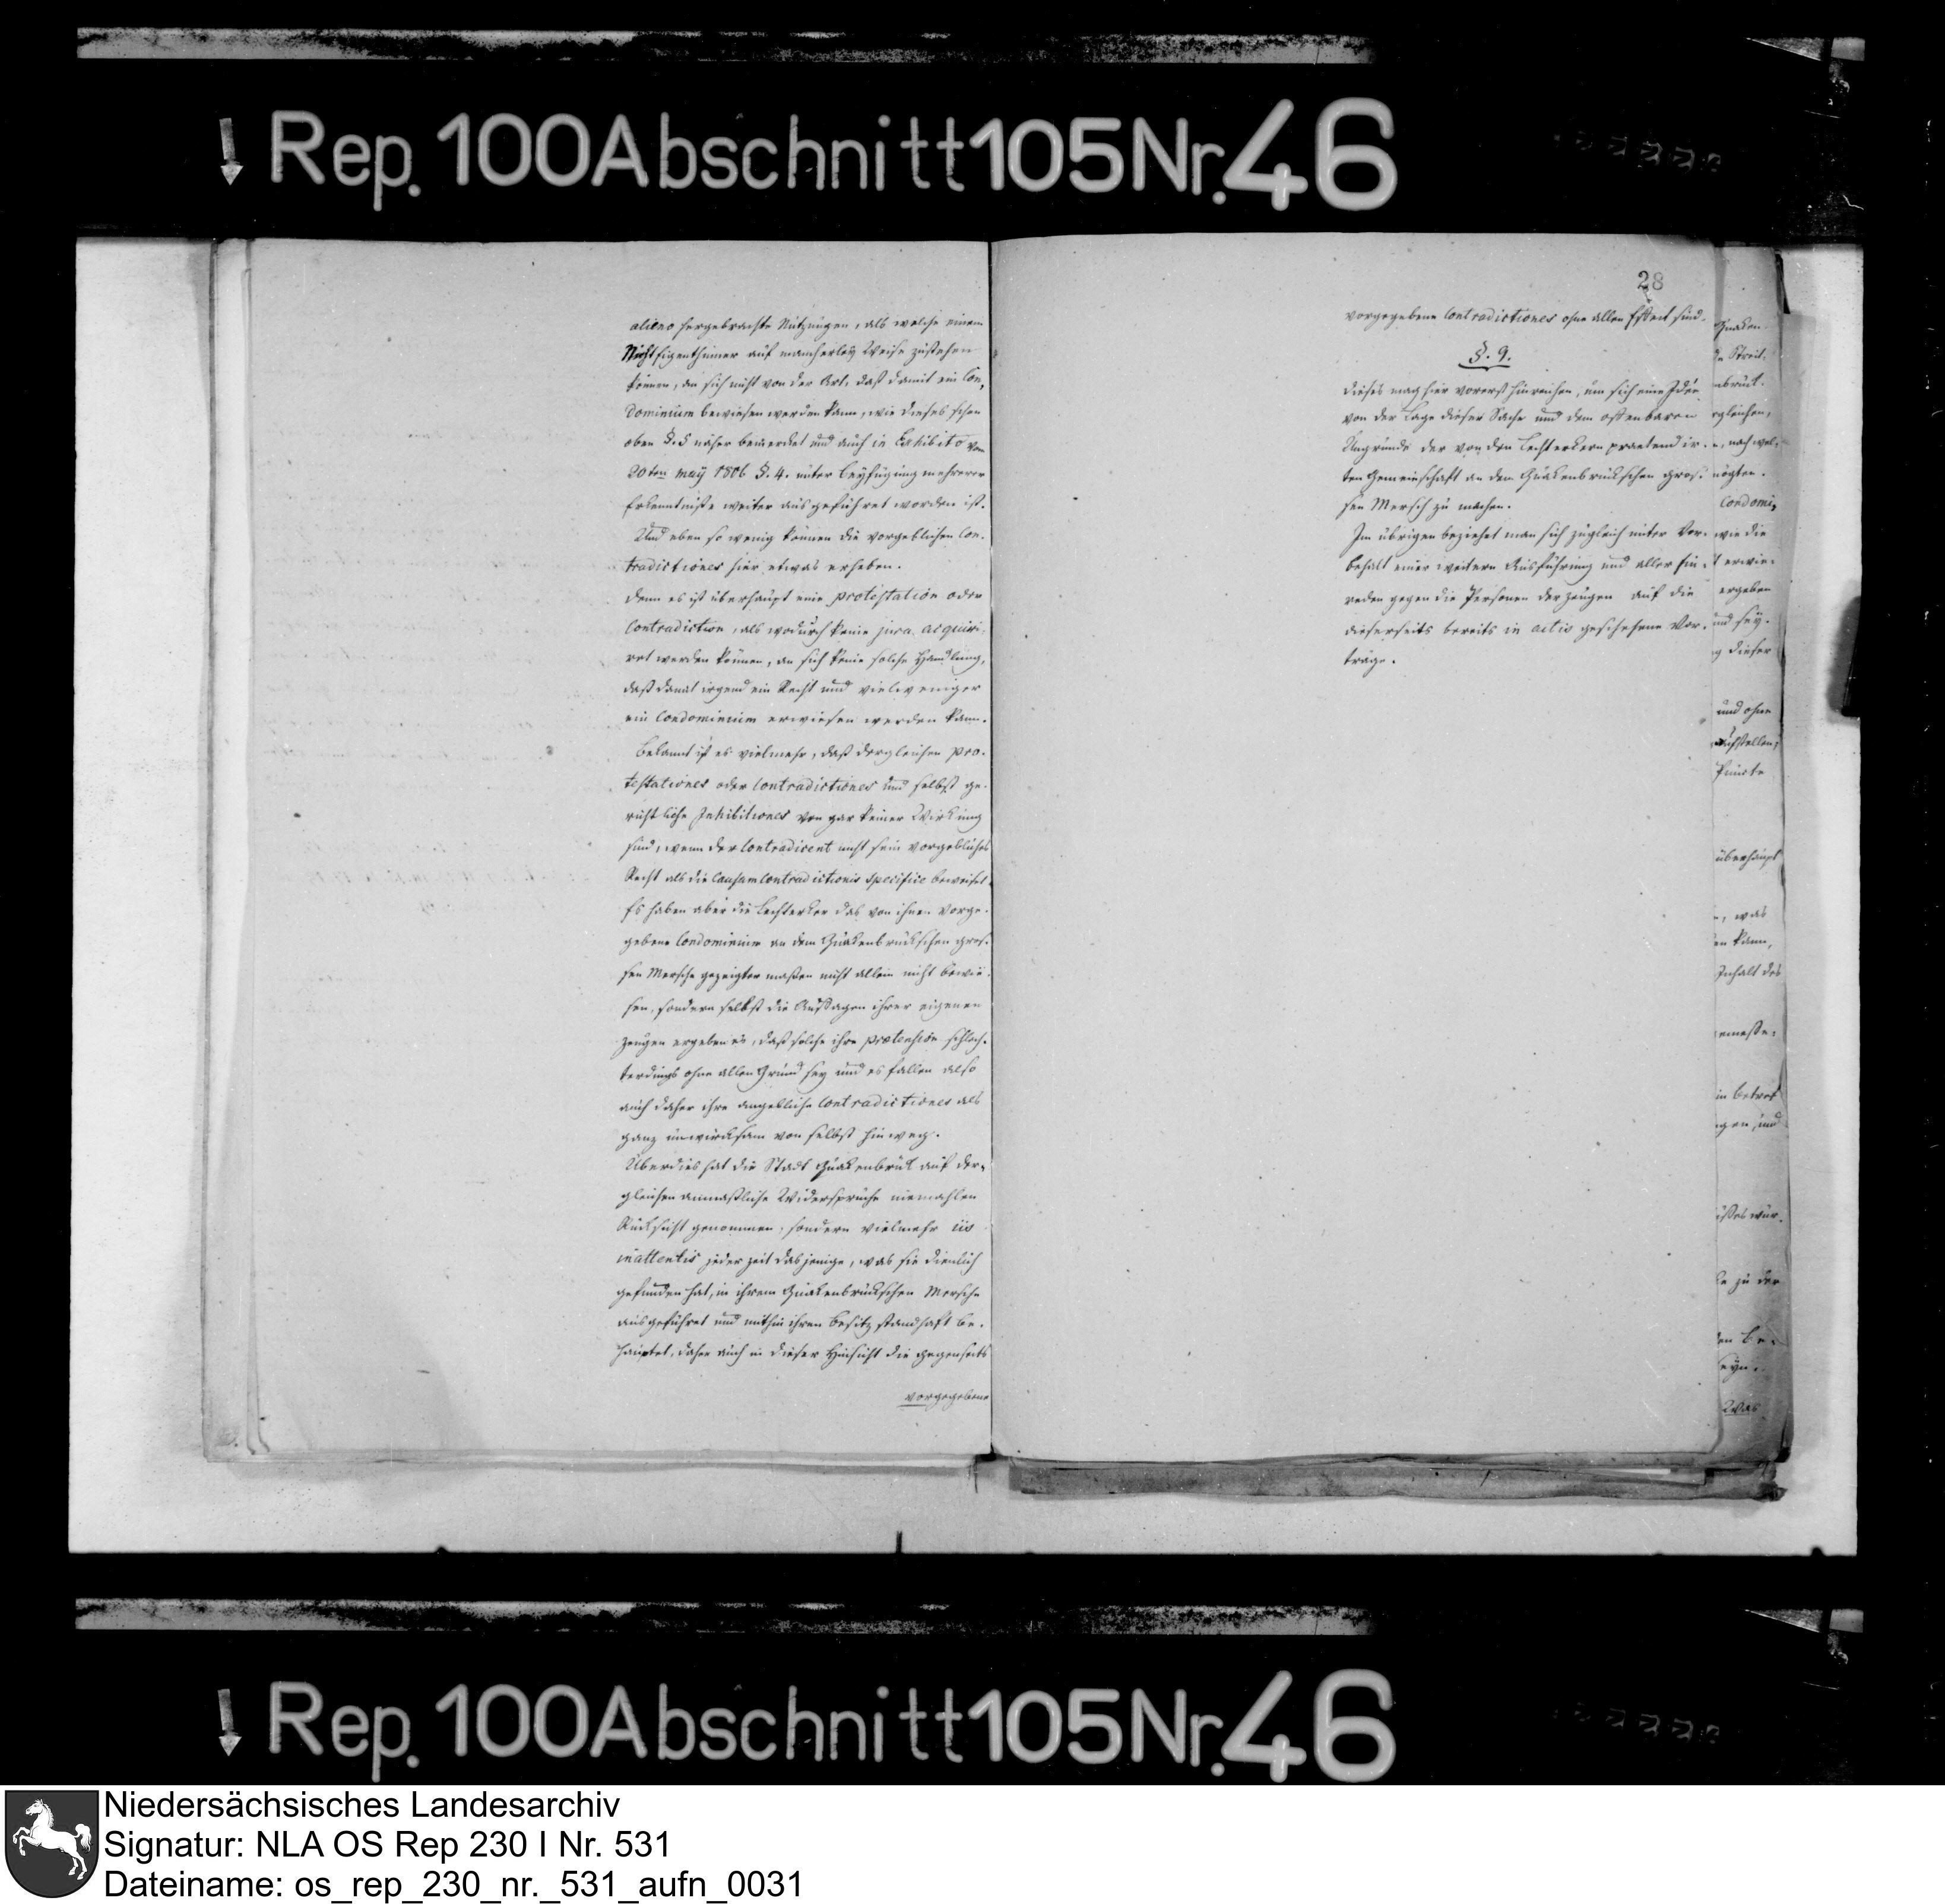 Rep. 100 Abschnitt 105 Nr. 46
alieno hergebrachte Nutzungen, als welche einem
Nichteigenthümer auf mancherley Weise zustehen
können, an sich nicht von der Art, daß damit ein Con,
dominium bewiesen werden kann, wie dieses schon
oben §. 5 näher bemerket und auch in Exhibito vom
20ten may 1806 §. 4. unter Beyfügung mehrerer
Erkenntniße weiter ausgeführet worden ist.
Und eben so wenig können die vorgeblichen Con-
tradictiones hier etwas erheben.
denn es ist überhaupt eine protestation oder
Contradiction, als wodurch keine jura acquiri-
ret werden können, an sich keine solche Handlung,
daß damit irgend ein Recht und vielweniger
ein Condominium erwiesen werden kann.
Bekannt ist es vielmehr, daß dergleichen pro-
testationes oder Contradictiones und selbst ge-
richtliche Inhibitiones von gar keiner Wirkung
sind, wenn der Contradicent nicht sein vorgebliches
Recht als die Causam Contradictionis specifice beweiset.
Es haben aber die Lechterker das von ihnen vorge-
gebene Condominium an dem Quakenbrückschen gros-
sen Mersche gezeigter maßen nicht allein nicht bewie-
sen, sondern selbst die Aussagen ihrer eigenen
Zeugen ergeben es, daß solche ihre prætension schlech-
terdings ohne allen Grund sey und es fallen also
auch daher ihre angebliche Contradictiones als
ganz unwürcksam von selbst hinweg.
Überdies hat die Stadt Quakenbrük auf der-
gleichen anmaßliche Widersprüche niemahlen
Rücksicht genommen, sondern vielmehr iis
inattentis jeder zeit dasjenige, was sie dienlich
gefunden hat, in ihrem Quakenbrückschen Mersche
ausgeführet und mithin ihren Besitz standhaft be-
hauptet, daher auch in dieser Hinsicht die gegenseits
vorgegebene
28
vorgegebene Contradictiones ohne allen Effect sind.
§. 9.
dieses mag hier vorerst hinreichen, um sich eine Idée
von der Lage dieser Sache und dem offenbaren
Ungrunde der von den Lechterkern praetendir-
ten Gemeinschaft an dem Quakenbrückschen gros-
sen Mersch zu machen.
Im übrigen beziehet man sich zugleich unter Vor-
behalt einer weitern Ausführung und aller Ein-
reden gegen die Personen der Zeugen auf die
dieserseits bereits in actis geschehene Vor-
träge.
Streit.
nach wel-
mögten.
Condomi,
wie die
erwie-
ergeben
und sey.
dieser
und ohne
aufstellen,
Puncte
überhaupt
was
kann,
Inhalt des
in betref
und
zu der
Be-
seyn.
Was
Rep. 100 Abschnitt 105 Nr. 46
Niedersächsisches Landesarchiv
Signatur: NLA OS Rep 230 I Nr. 531
Dateiname: os_rep_230_nr._531_aufn_0031